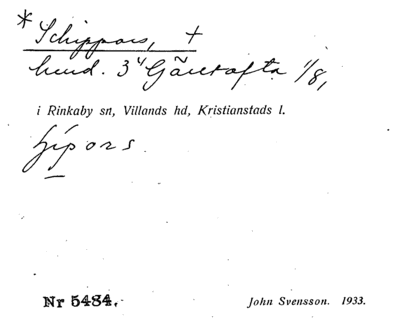 * Schippars, +
hmd. 3 Gärestofta 1/8,
i Rinkaby sn, Villands hd, Kristianstads l.
Nr 5484.
John Svensson. 1933.